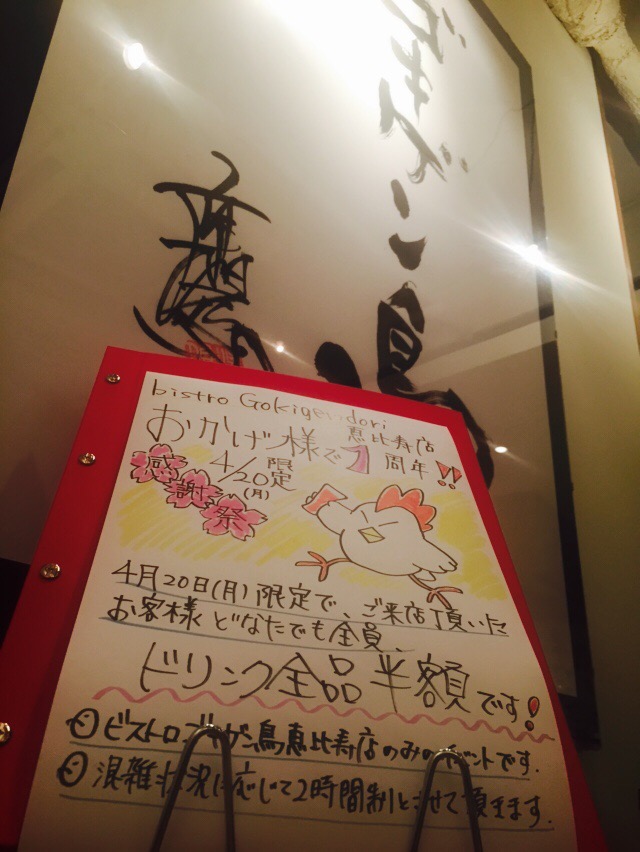 ごきげん鳥
bistro Gokigendori
恵比寿店
おかげ様で1周年!!
4/20(月)限定
感謝祭
4月20日(月)限定で、ご来店頂いた
お客様どなたでも全員、
ドリンク全品半額です!
ビストロゴキゲン鳥恵比寿店のみのイベントです.
混雑状況に応じて2時間制とさせて頂きます.